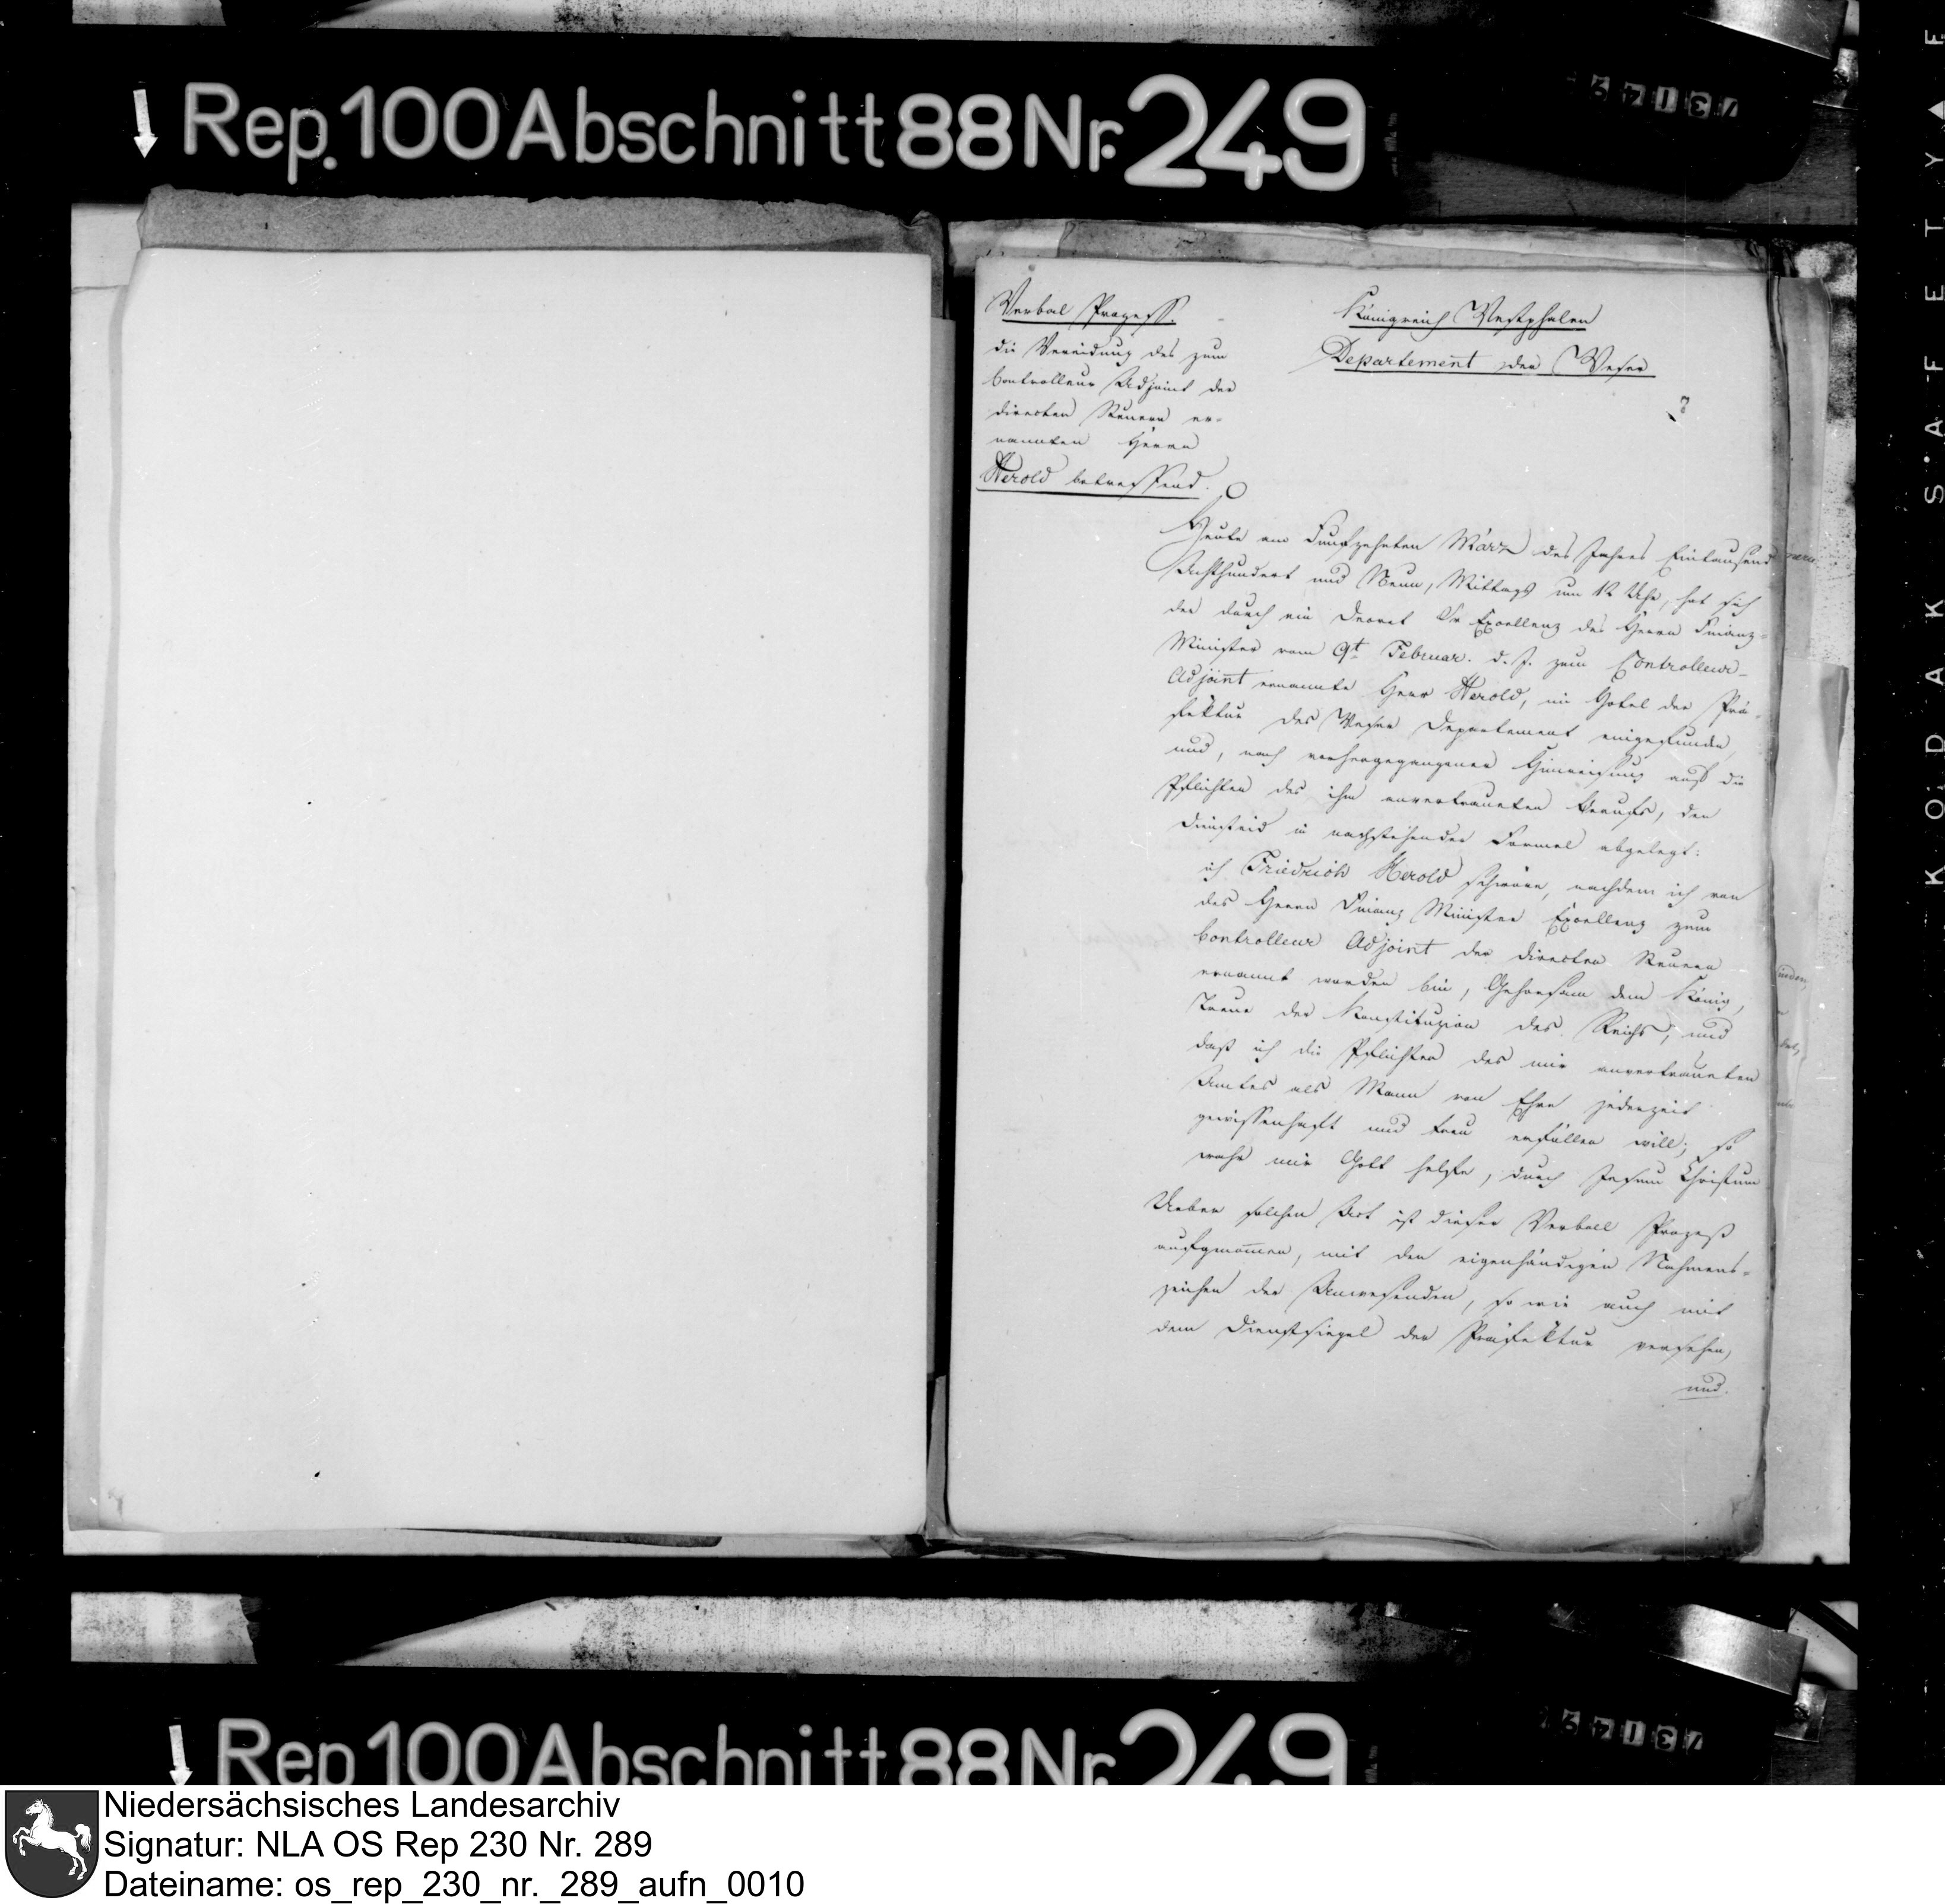 Rep. 100 Abschnitt 88 Nr. 249
73149
Verbal Prozess.
die Vereidung des zum
Controlleur Adjoint der
directen Steuern er-
nannten Herrn
Herold betreffend.
Königreich Westphalen
Departement der Weser
Heute am Funfzehnten März des Jahres Eintausend
Achthundert und Neun, Mittags um 12 Uhr, hat sich
der durch ein Decret Sr Excellenz des Herrn Finanz-
Minister vom 9t Februar. d. J. zum Controlleur-
Adjoint ernannte Herr Herold, im Hotel der Prä-
fektur des Weser Departement eingefunden
und, nach vorhergegangener Hinweisung auf die
Pflichten des ihm anvertraueten Berufs, den
Diensteid in nachstehender Formel abgelegt:
ich Friedrich Herold schwöre, nachdem ich von
des Herrn Finanz Minister Excellenz zum
Controlleur Adjoint der directen Steuern
ernannt worden bin, Gehorsam dem König,
Treue der Konstituzion des Reichs, und
daß ich die Pflichten des mir anvertraueten
Amtes als Mann von Ehre jederzeit
gewissenhaft und treu erfüllen will; so
wahr mir Gott helfe, durch Jesum Christum
Ueber solchen Act ist dieser Verball Prozeß
aufgenommen, mit den eigenhändigen Nahmens-
zeichen der Anwesenden, so wie auch mit
dem Dienstsiegel der Präfektur versehen,
und.
KODAK SAFETY F
Rep 100 Abschnitt 88 Nr. 249
73149
Niedersächsisches Landesarchiv
Signatur: NLA OS Rep 230 Nr. 289
Dateiname: os_rep_230_nr._289_aufn_0010